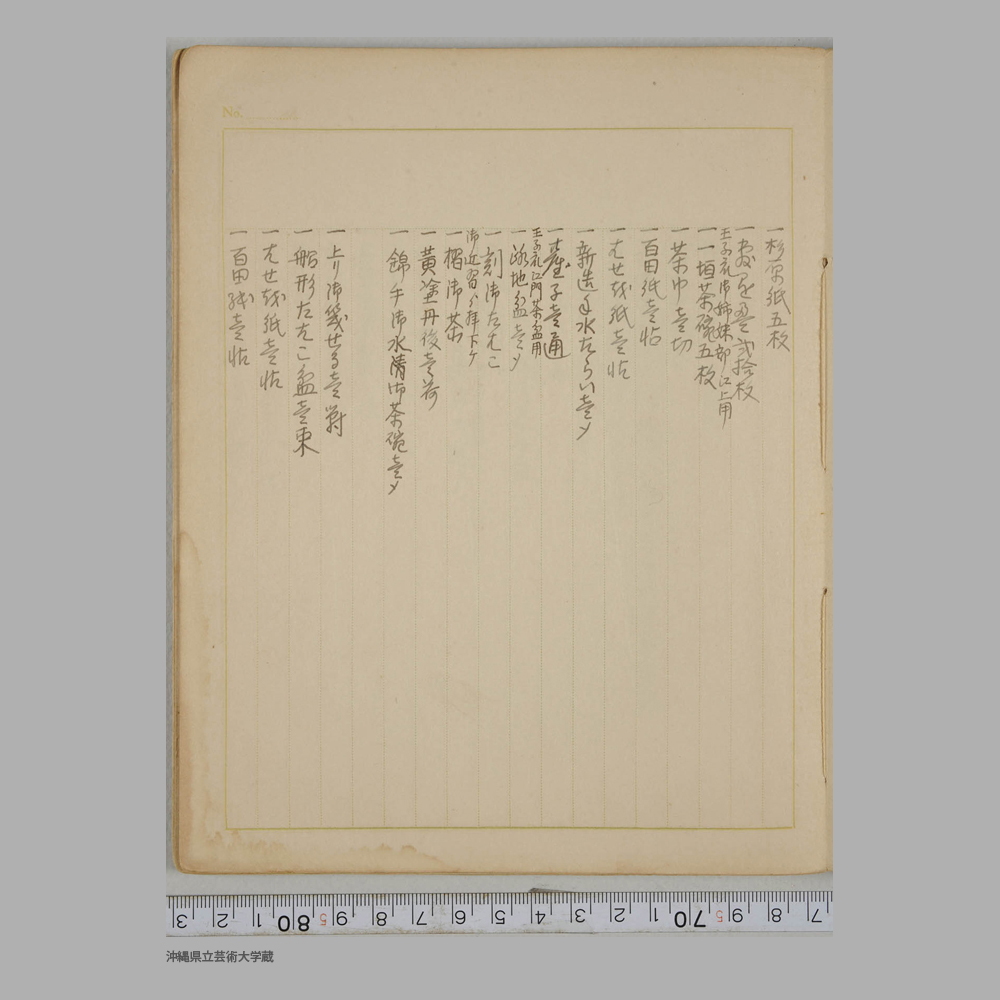 No.
一 杉原紙五枚
一 弐拾枚
王子衣御姉妹部江上用
一 一垣茶碗五枚
一 茶巾壱切
一 百田紙壱帖
一 はせを紙壱帖
一 新造手水たらい壱〆
一 壱通
王子衣江門茶盆用
一 路地盆壱〆
一 刻御たはこ
御近習ゟ拝下ケ
一 摺御茶
一 黄塗丹後壱荷
一 錦手御水清御茶碗壱〆
一 上り御幾せる壱対
一 船形たはこ盆壱束
一 はせを紙壱帖
一 百田紙壱帖
3 2 1 80 5 9 8 7 6 5 4 3 2 1 70 5 9 8 7
沖縄県立芸術大学蔵